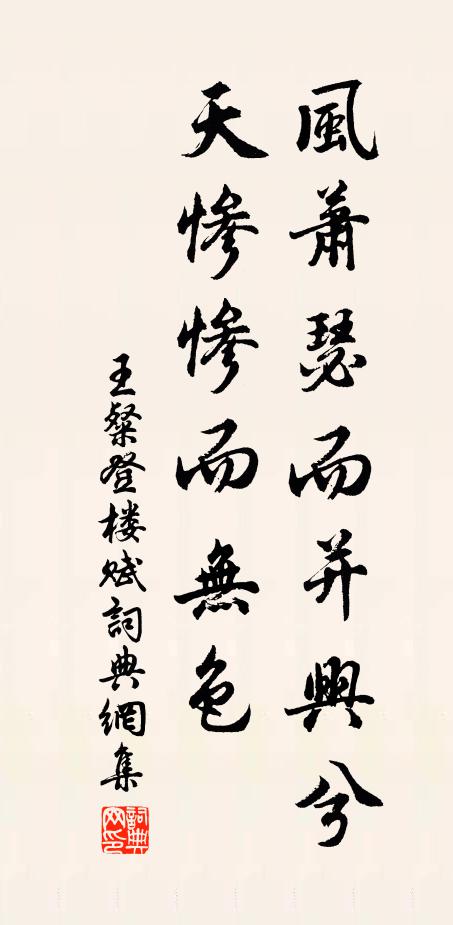 風蕭瑟而并興兮
天慘慘而無色
王粲登楼賦詞典網集
詞典
网印